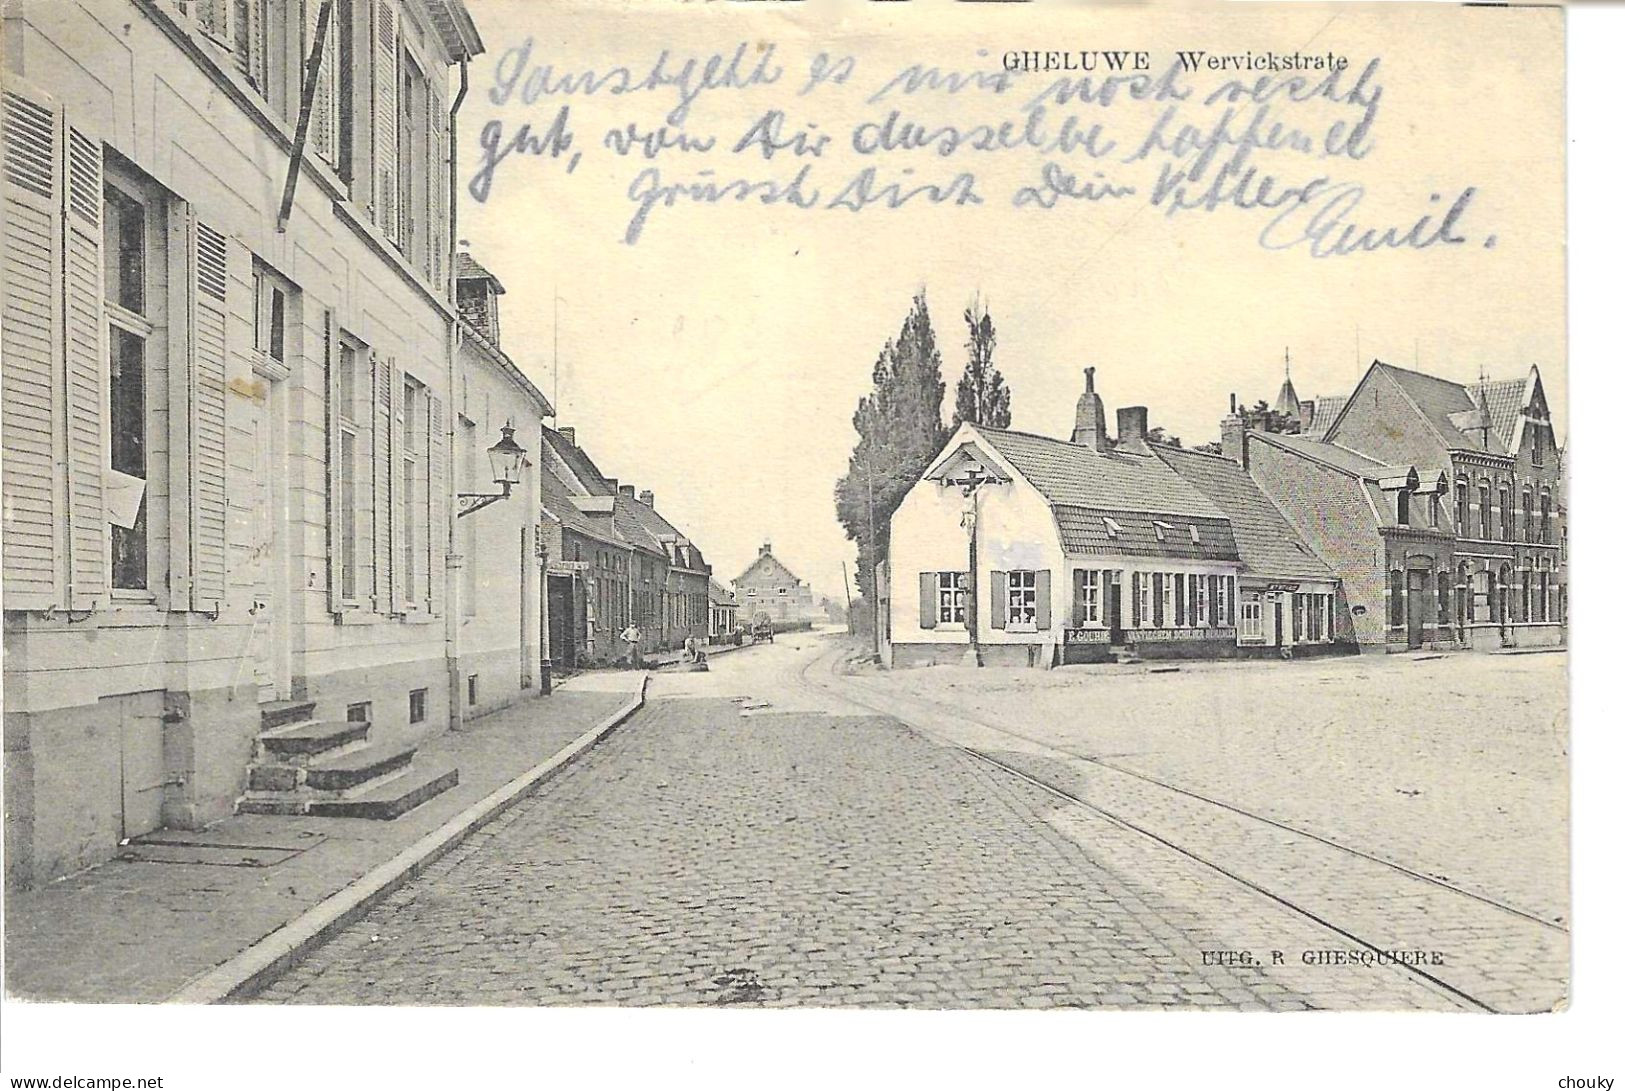 GHELUWE Wervickstrate
Sonst geht es mir noch recht
gut, von Dir dasselbe hoffend
grüsst Dich Dein Vetter Emil.
E. GOURIE VANIEGHEM SCHILDER BEHANGER
UITG. R GHESQUIERE
delcampe.net
chouky